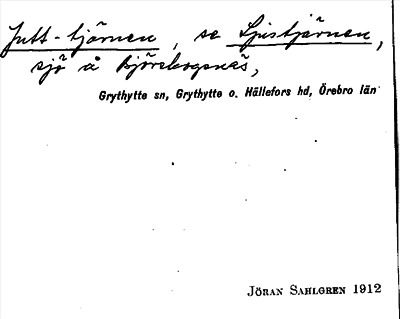 Jutt-tjärnen, se Ljustjärnen,
sjö å Björskogsnäs,
Grythytte sn, Grythytte o. Hällefors hd, Örebro län
JÖRAN SAHLGREN 1912